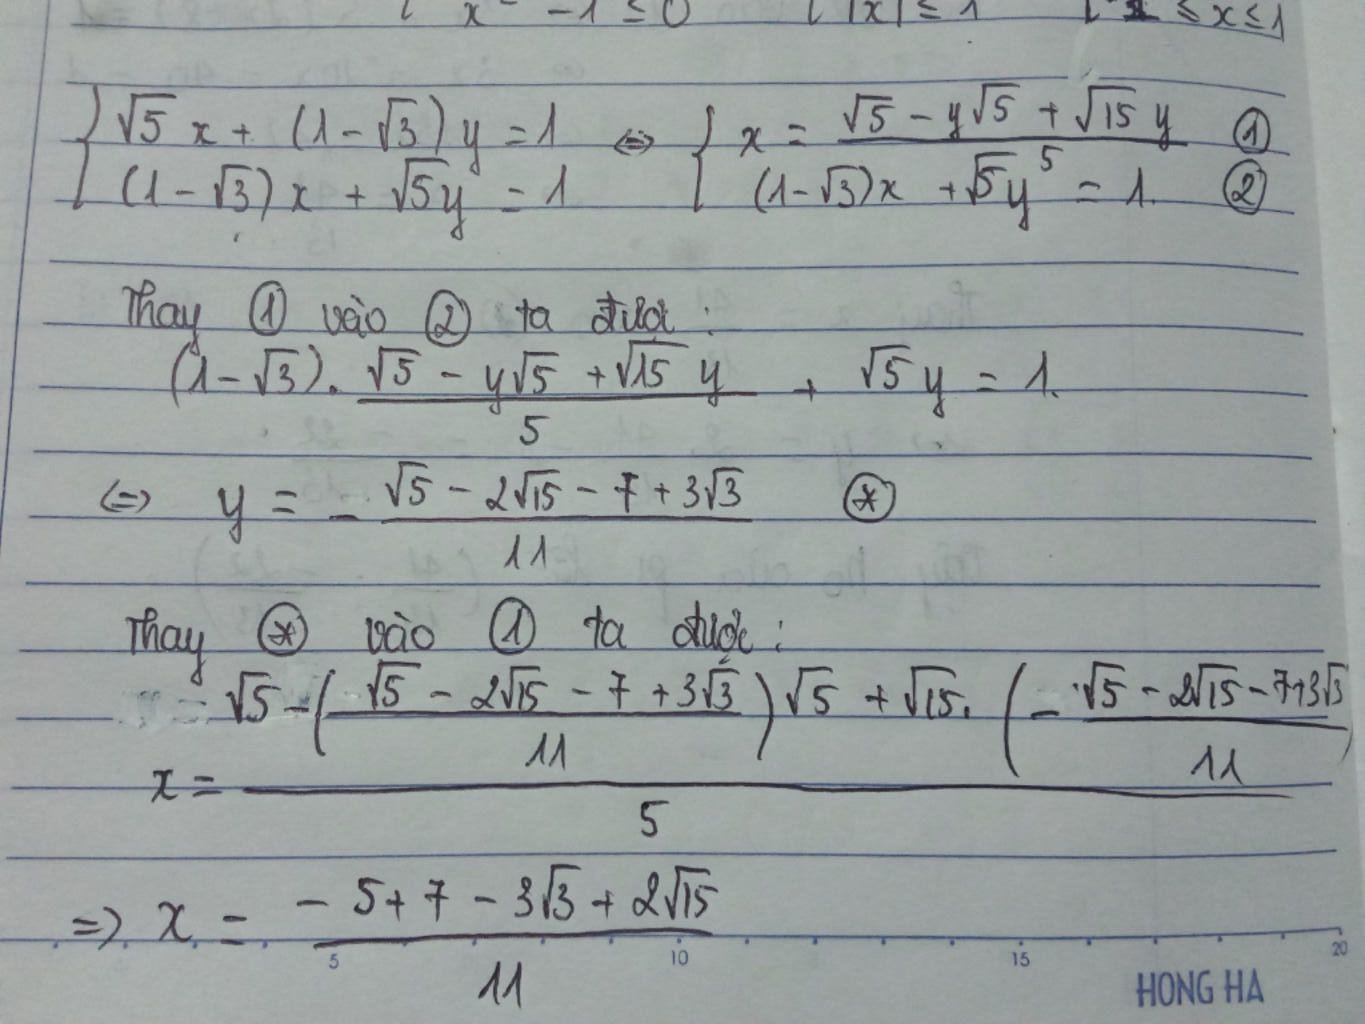 x² - 1 ≤ 0 |x| ≤ 1 ≤ x ≤ 1
√5 x + (1 - √3) y = 1 ⇔ x = (√5 - y√5 + √15 y) / 5 ①
(1 - √3) x + √5y = 1 (1 - √3)x + √5y = 1. ②
Thay ① vào ② ta được :
(1 - √3). (√5 - y√5 + √15 y) / 5 + √5 y = 1.
⇔ y = - (√5 - 2√15 - 7 + 3√3) / 11 ⊛
Thay ⊛ vào ① ta được :
x = (√5 - ((√5 - 2√15 - 7 + 3√3) / 11) √5 + √15. (- (√5 - 2√15 - 7 + 3√3) / 11)) / 5
⇒ x = (- 5 + 7 - 3√3 + 2√15) / 11
5 10 15 20
HONG HA